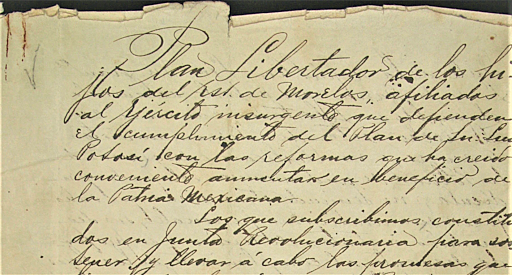 Plan Libertador de los hi-
jos del Est. de Morelos, afiliados
al Ejército insurgente que defienden
el cumplimiento del Plan de Sn Luis
Potosí con las reformas que ha creido
conveniente aumentar en beneficio de
la Patria Mexicana.
Los que subscribimos, constitui-
dos en Junta Revolucionaria para sos-
tener y llevar á cabo las promesas que